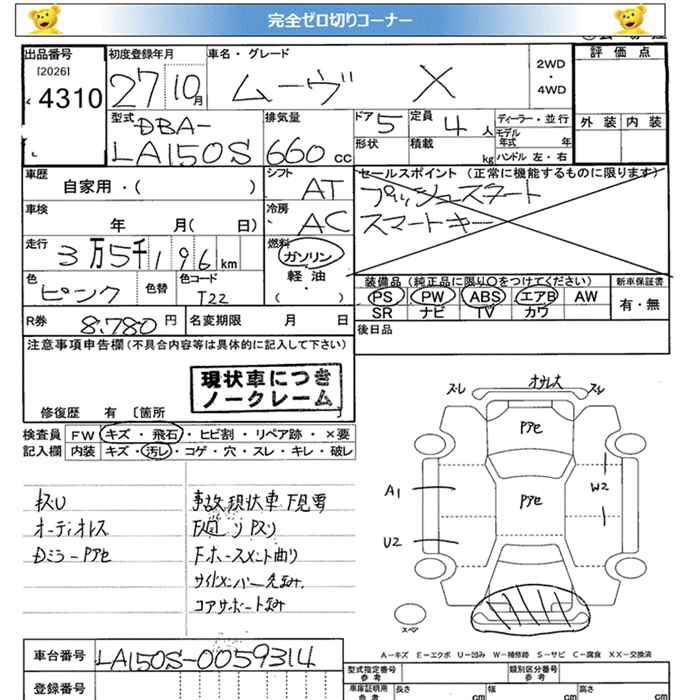 完全ゼロ切りコーナー
出品番号 初度登録年月 車名・グレード
[2026]
4310 27 10月 ムーヴ X 2WD・4WD 評価点
型式 排気量 ドア 5 定員 4人 ディーラー・並行 外装 内装
DBA-
LA150S 660cc 形状 積載 kg モデル年式 年 ハンドル 左・右
車歴 シフト セールスポイント (正常に機能するものに限ります)
自家用・( ) AT プッシュスタート
車検 冷房 スマートキー
年 月( 日) AC
走行 燃料
3万5千196km ガソリン
色 色替 色コード 軽油・( ) 装備品(純正品に限り〇をつけてください) 新車保証書
ピンク T22 PS PW ABS エアB AW 有・無
SR ナビ TV カワ
R券 8,780円 名変期限 月 日 後日品
注意事項申告欄(不具合内容等は具体的に記入して下さい)
現状車につき
ノークレーム
修復歴 有 [箇所 ]
検査員 FW キズ・飛石・ヒビ割・リペア跡・×要
記入欄 内装 キズ・汚レ・コゲ・穴・スレ・キレ・破レ
スレ オサレ大 スレ
Pアセ
Pアセ
A1 W2
U2
スペア
オーディオレス
Dミラー Pアセ
事故現状車 下見要
サイドメンバー
コアサポート
A-キズ E-エクボ U-凹み W-補修跡 S-サビ C-腐食 XX-交換済
車台番号 LA150S-0059314 型式指定番号 参考 類別区分番号 参考
登録番号 車庫証明用 参考 長さ cm 幅 cm 高さ cm